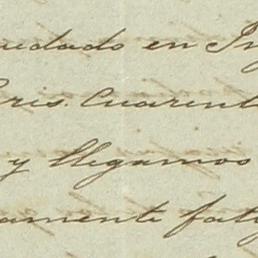 uedado en In
ris. Cuarent
y llegamos
amente fati